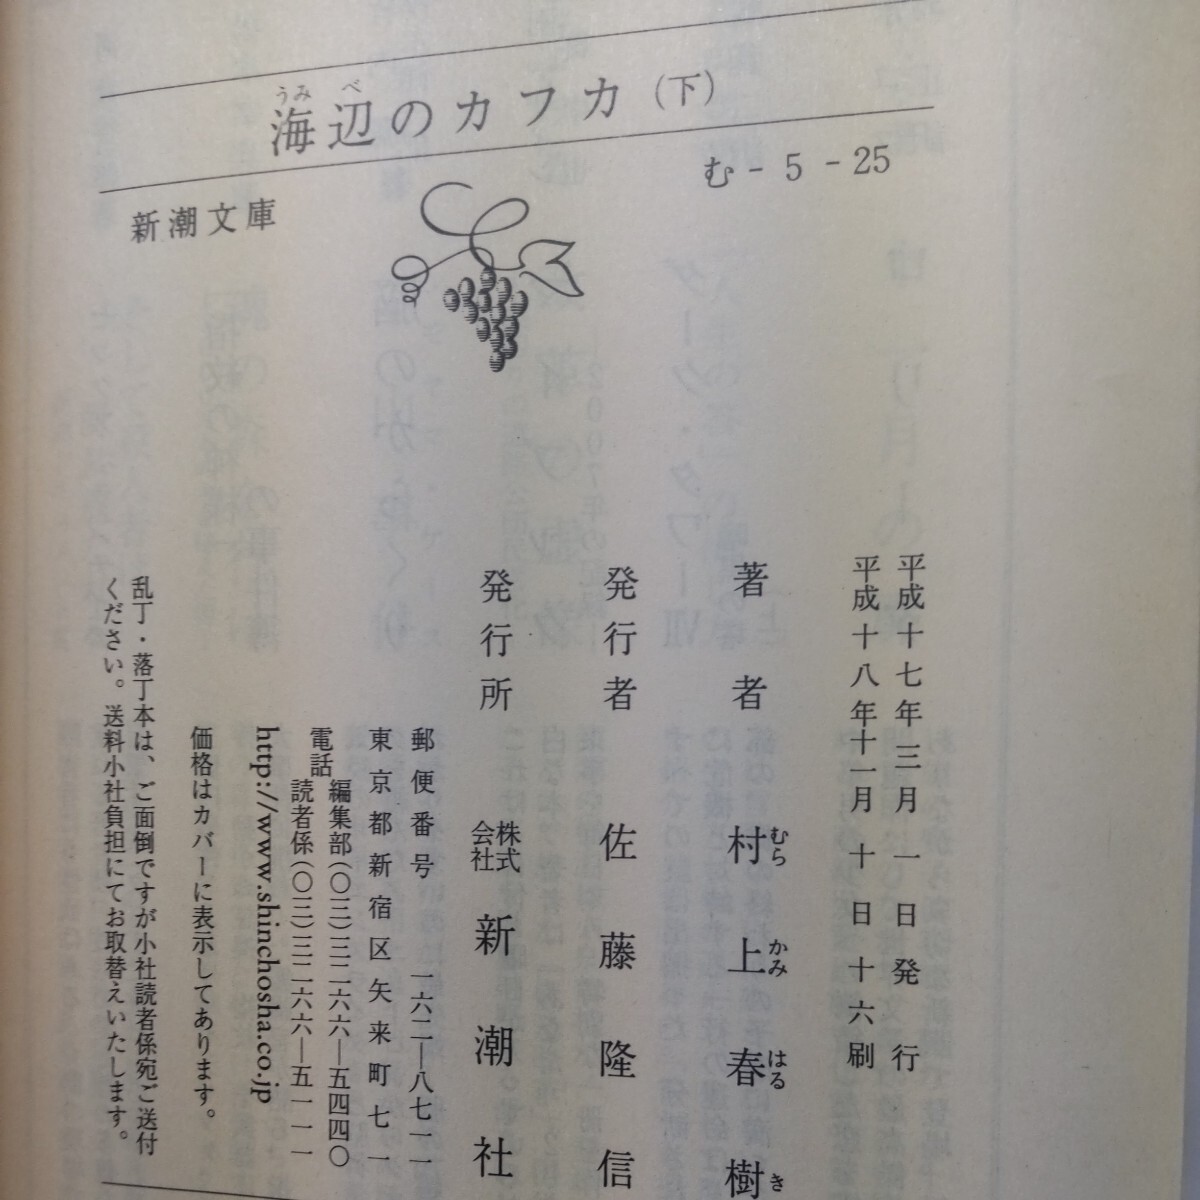 海辺のカフカ(下)
うみべ
新潮文庫
む-5-25
平成十七年三月一日発行
平成十八年十一月十日十六刷
著者 村上春樹
むらかみはるき
発行者 佐藤隆信
発行所 株式会社 新潮社
郵便番号 一六二―八七一一
東京都新宿区矢来町七一
電話 編集部(〇三)三二六六―五四四〇
読者係(〇三)三二六六―五一一一
http://www.shinchosha.co.jp
価格はカバーに表示してあります。
乱丁・落丁本は、ご面倒ですが小社読者係宛ご送付
ください。送料小社負担にてお取替えいたします。